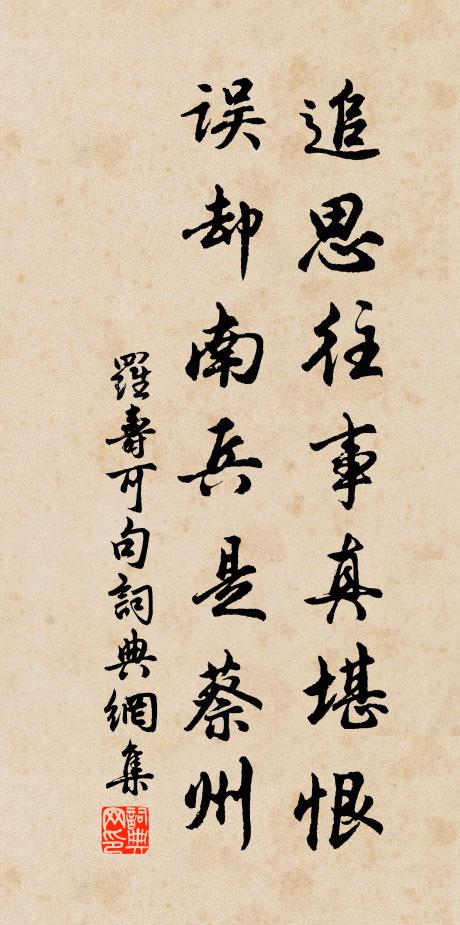 追思往事真堪恨
误却南兵是蔡州
羅壽可句詞典網集
詞典網印